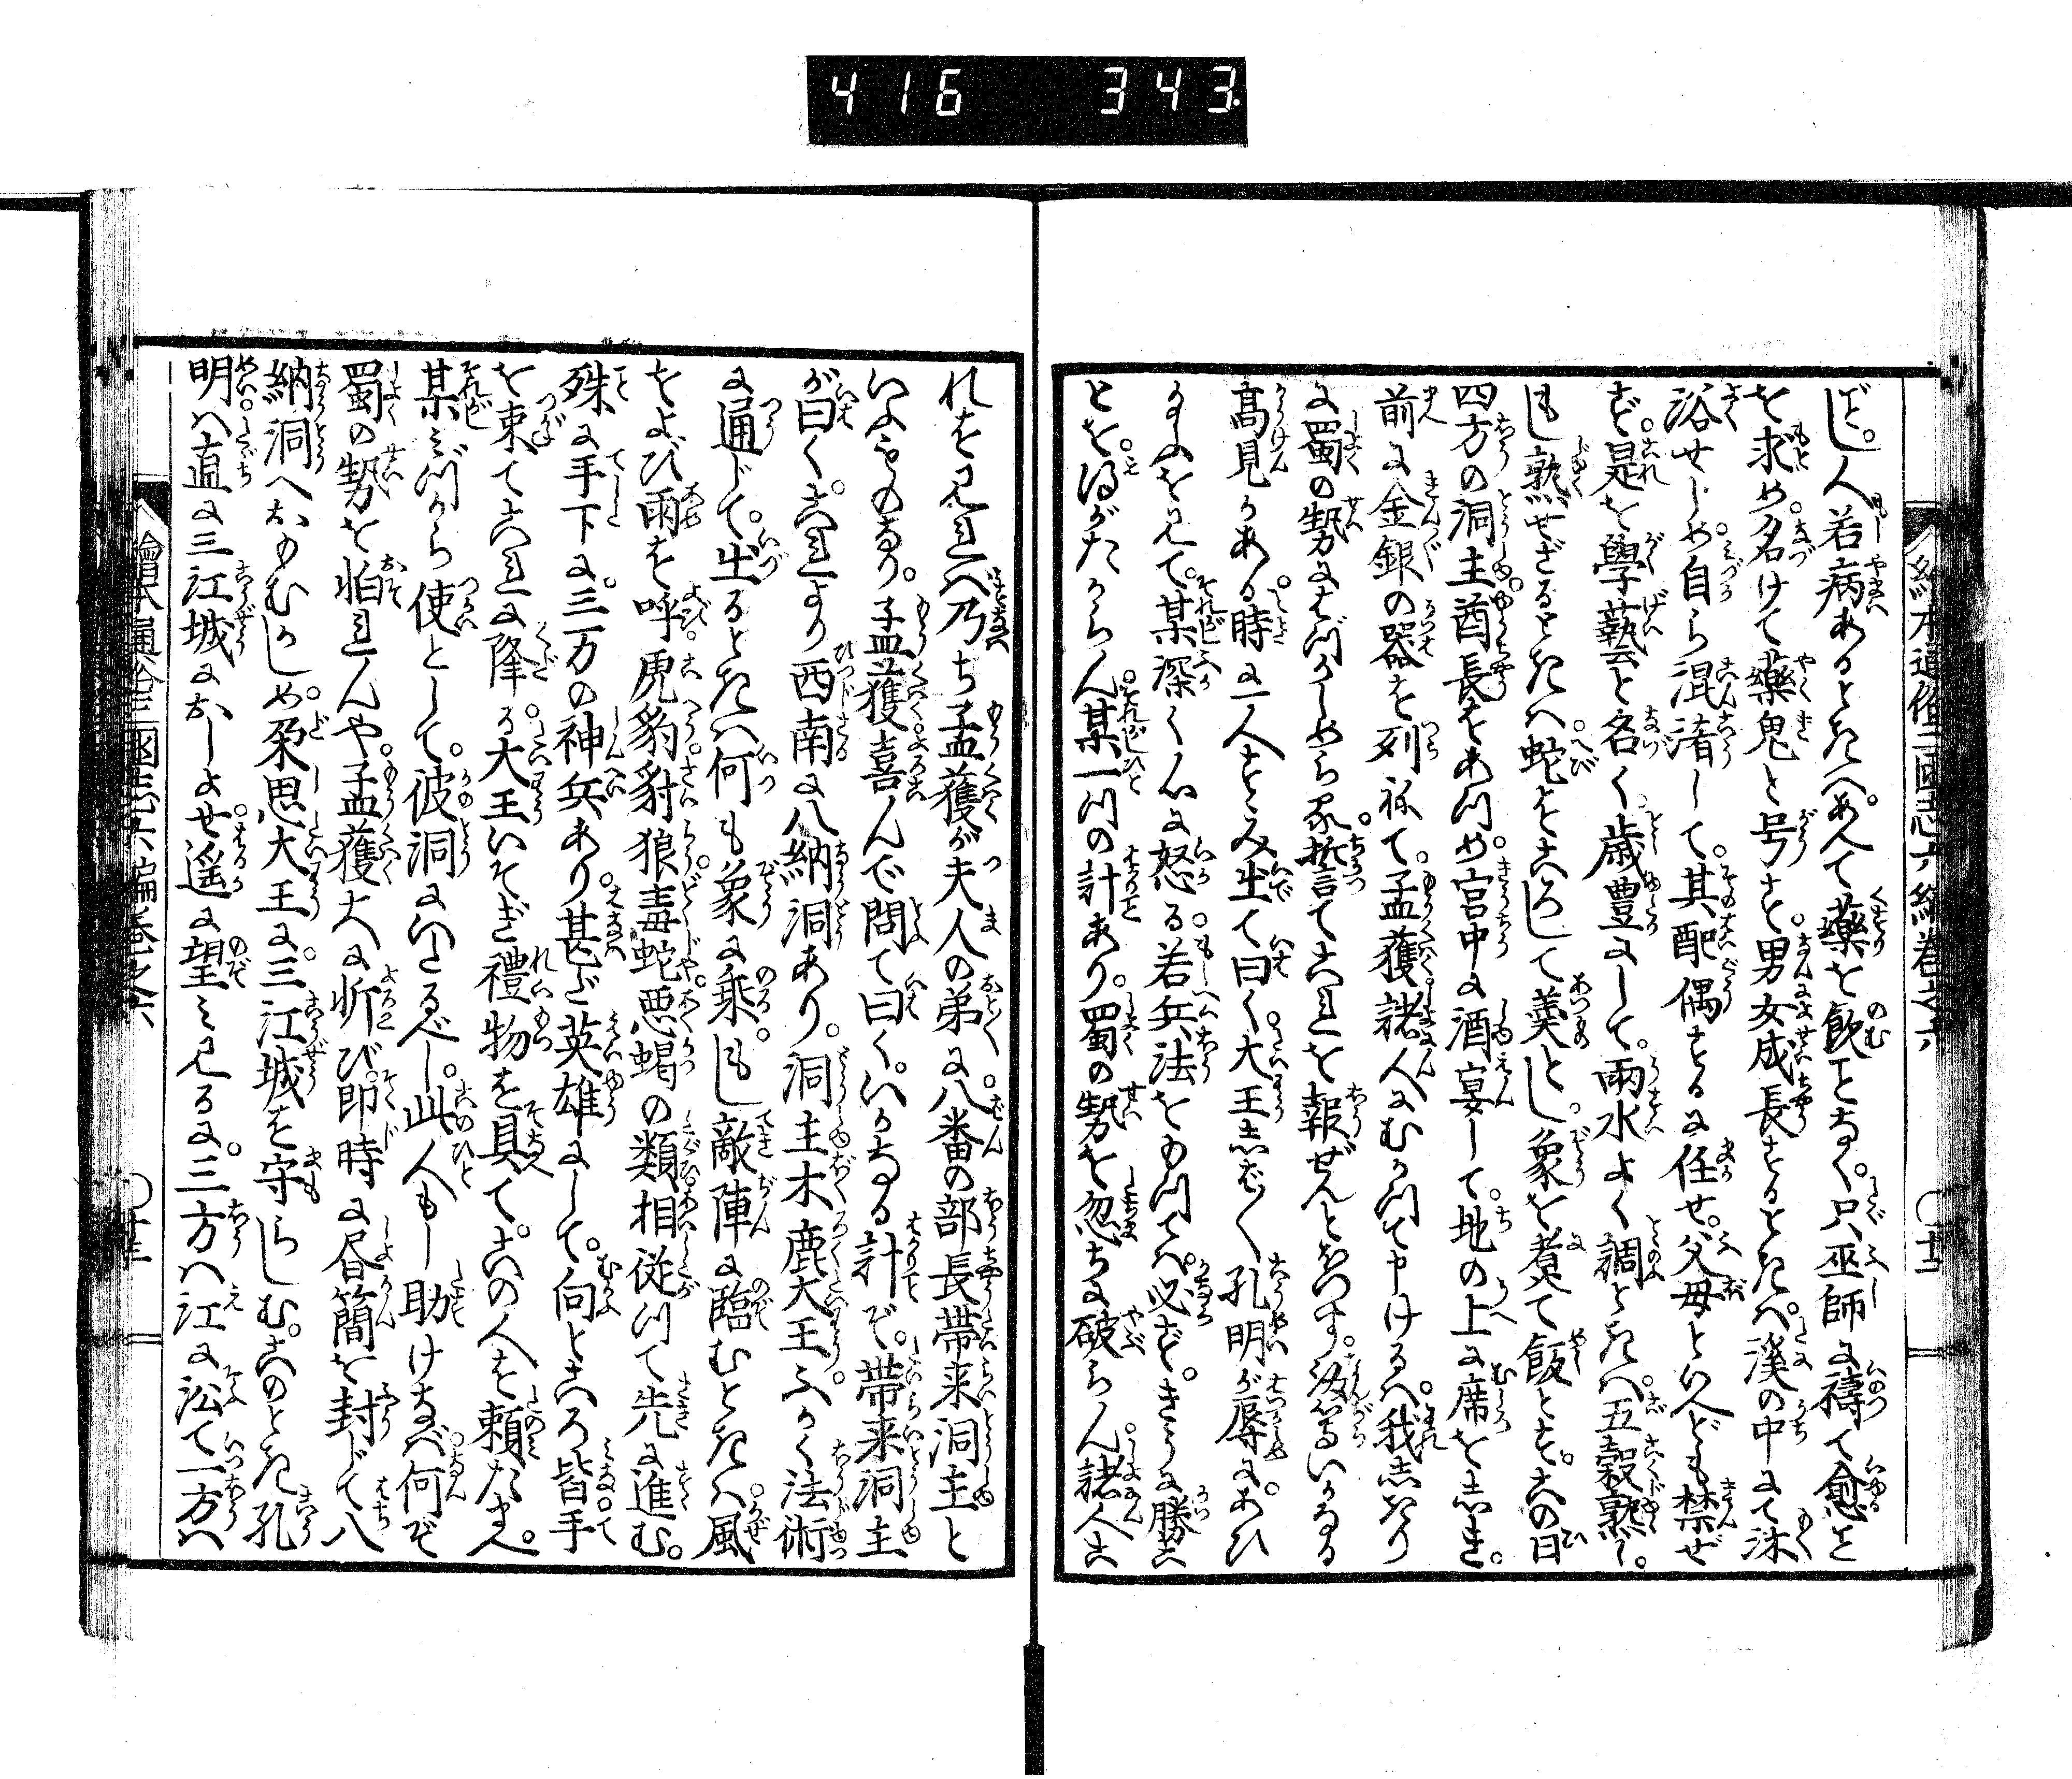 416 343.
繪本通俗三國志六編卷之六 〇十二
どし。人若病あるときハ。あへて藥を飲ことなく。只巫師に禱て愈を
を求め。名けて藥鬼と号す。男女成長するときハ。溪の中にて沐
浴せしめ。自ら混淆して。其配偶するに任せ。父母といへども禁ぜ
ず。是を學藝と名く。歳豊にして。雨水よく調ときハ。五穀熟す。
もし熟せざるときハ。蛇をころして羹とし。象を煮て飯とす。この日
四方の洞主酋長をあつめ。宮中に酒宴して。地の上に席をしき。
前に金銀の器を列ねて。孟獲諸人にむかつて申けるハ。我しきり
に蜀の勢にはづかしめらる。誓てこれを報ぜんとおもふ。汝等いかなる
高見かある。時に一人すゝみ出て曰く。大王しば〱孔明が辱にあひ
玉ふを見て。某深く心に怒る。若兵法をもつてハ。必ず。きうに勝こ
とを得がたからん。某一つの計あり。蜀の勢を忽ちに破らん。諸人こ
れを見れバ。乃ち孟獲が夫人の弟に。八番の部長帯来洞主と
いふものなり。孟獲喜んで問て曰く。いかなる計ぞ。帯来洞主
が曰く。これより西南に八納洞あり。洞主木鹿大王ふかく法術
に通じて。出るときハ何も象に乘。もし敵陣に臨むときハ。風
をよび雨を呼。虎豹豺狼。毒蛇。惡蝎の類相従つて先に進む。
殊に手下に。三万の神兵あり。甚ど英雄にして。向ところ皆手
を束てこれに降る。大王いそぎ禮物を具て。この人を頼たまへ。
某ミづから使として。彼洞にいたるべし。此人もし助けなバ。何ぞ
蜀の勢を怕れんや。孟獲大に忻び。即時に書簡を封じて八
納洞へおもむかしめ。朶思大王に。三江城を守らしむ。このとき孔
明ハ直に三江城におしよせ。遥に望ミ見るに。三方ハ江に沿て一方ハ
繪本通俗三國志六編卷之六 〇十三